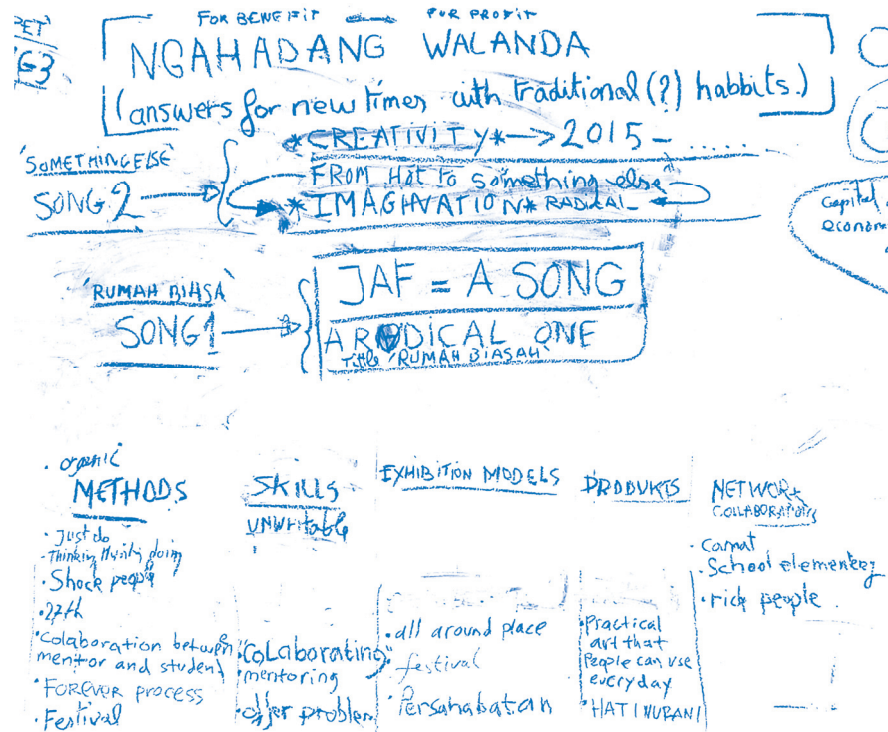 FOR BENEFIT FOR PROFIT
NGAHADANG WALANDA
(answers for new times with traditional (?) habbits.)
*CREATIVITY* -> 2015 - ......
'SOMETHING ELSE'
SONG 2
FROM Hot to something else
*IMAGINATION* RADICAL
Capital
econom
'RUMAH BIASA'
SONG 1
JAF = A SONG
A RADICAL ONE
Title 'RUMAH BIASAH'
· organic
METHODS
· Just do
- Thinking
doing
· Shock people
· 27th
· Colaboration between
mentor and student
· FOREVER process
· Festival
SKILLS
UNWritable
· CoLaborating
· mentoring
· offer problem
EXHIBITION MODELS
· all around place
· festival
· Persahabatan
PRODUKTS
· Practical
art that
People can use
everyday
· HATI NURANI
NETWORK
COLLABORATORS
· Camat
· School elementery
· rich people.